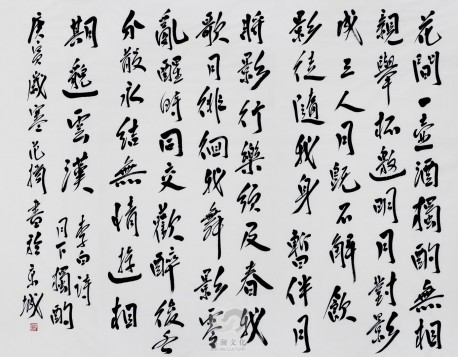 花間一壺酒獨酌無相
親舉杯邀明月對影
成三人月既不解飲
影徒隨我身暫伴月
將影行樂須及春我
歌月徘徊我舞影零
亂醒時同交歡醉後各
分散永結無情遊相
期邈雲漢
李白詩
月下獨酌
庚寅歲寒范書於京城
文化